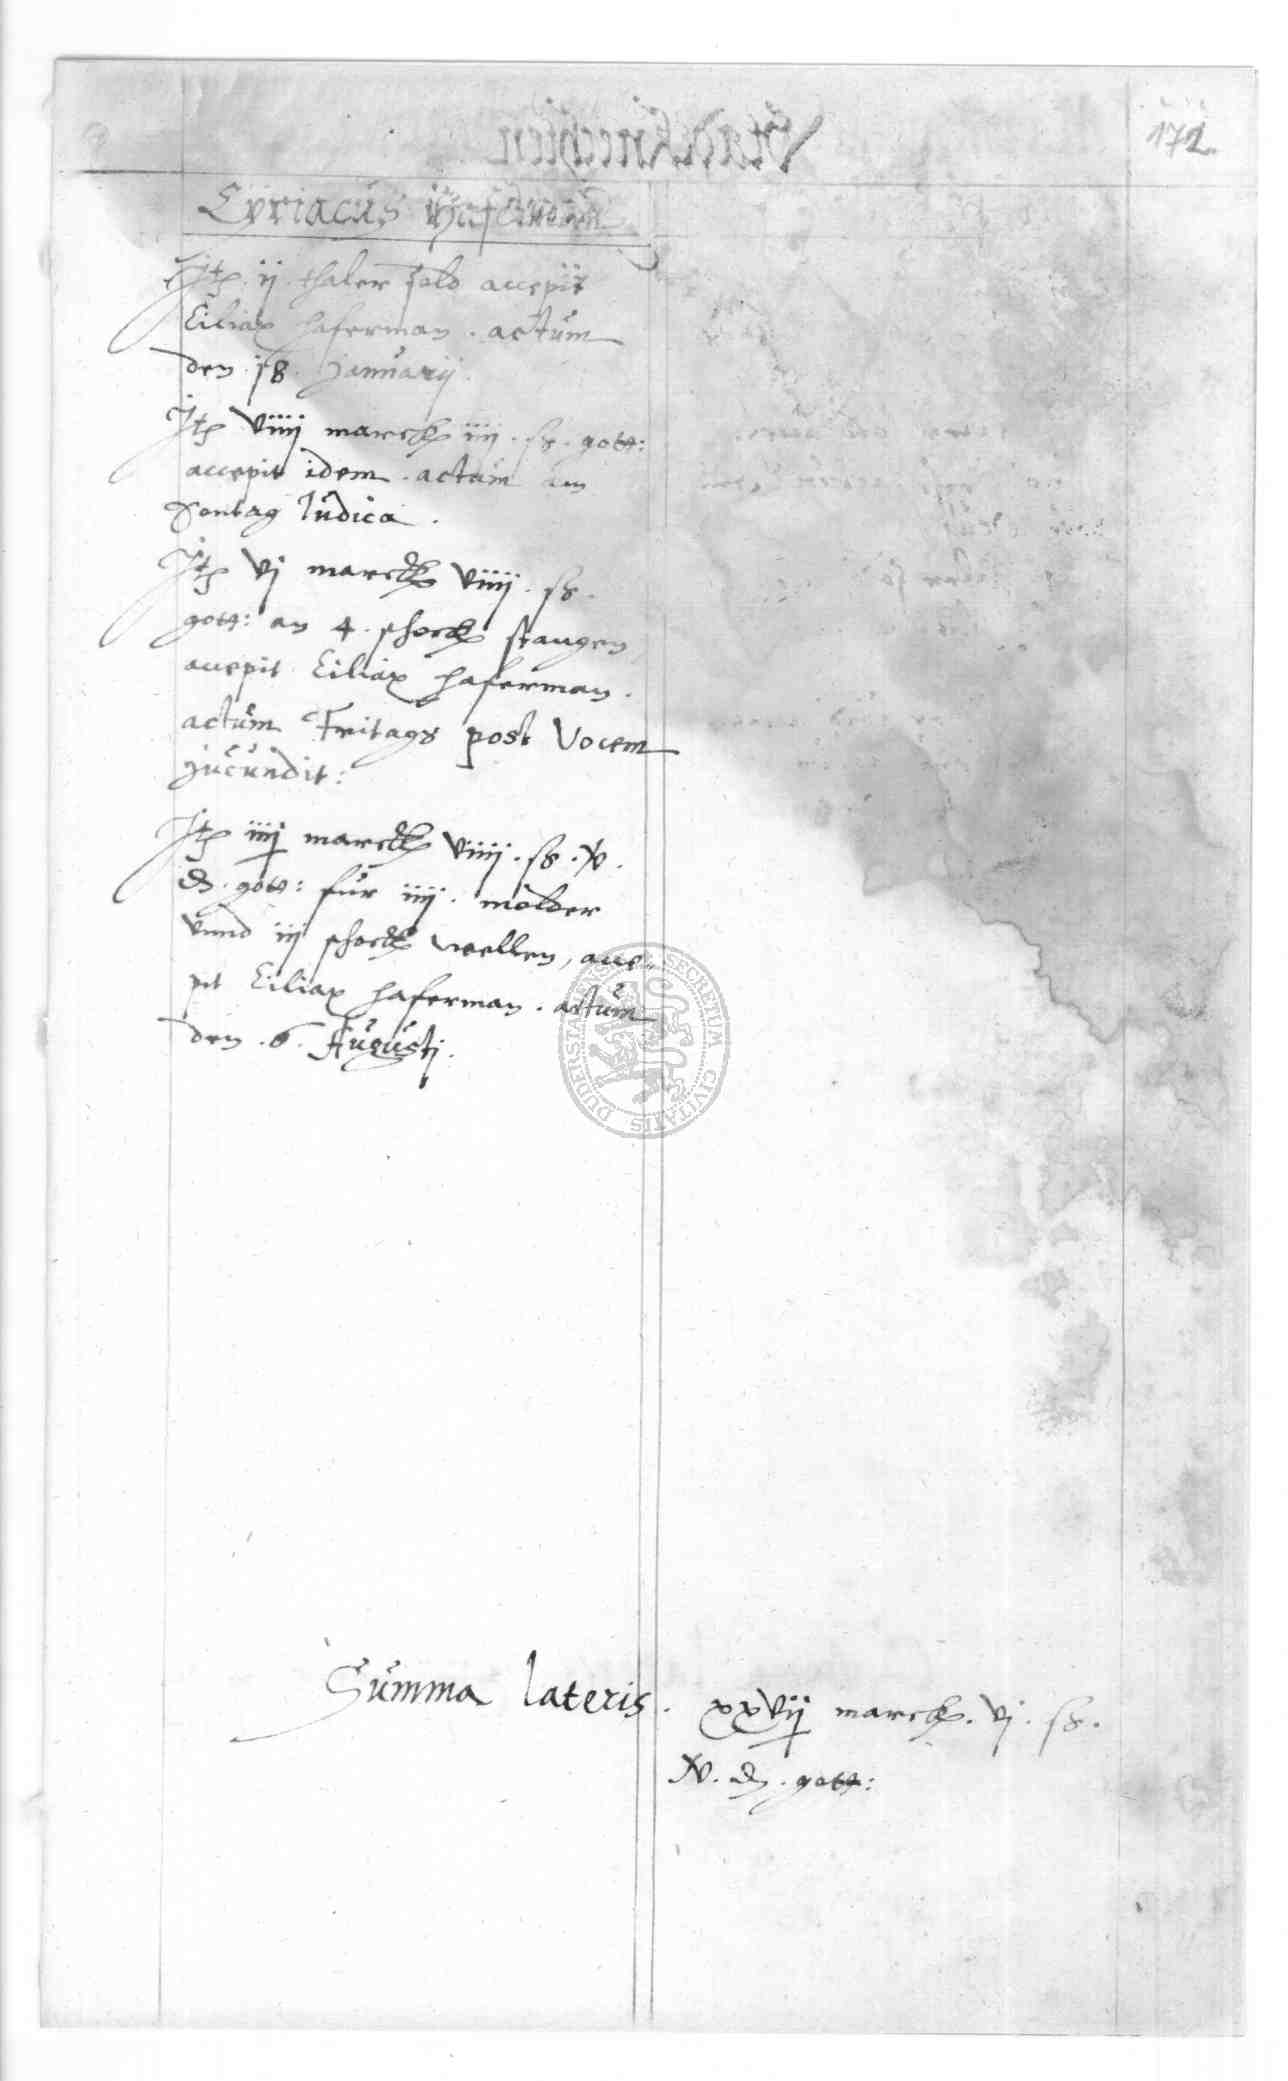 172
Cyriacus Haferman
Jt. ij. thaler sold accepit
Ciliax haferman. actum
den. 18. Januarij.
Jt. viiij marck iiij. ß. gott:
accepit idem. actum am
Sontag Iudica.
Jt. vj marck viiij. ß.
gott: an 4. schock stangen
accepit Ciliax haferman.
actum Fritags post Vocem
jucundit:
Jt. iiij marck viiij. ß. iv.
d. gott: fur iiij. molder
vnnd iij schock wellen, acce-
pit Ciliax haferman. actum
den. 6. Augustj.
SECRETUM CIVITATIS DUDERSTADENSIS
Summa lateris. xxvij marck. vj. ß.
iv. d. gott: